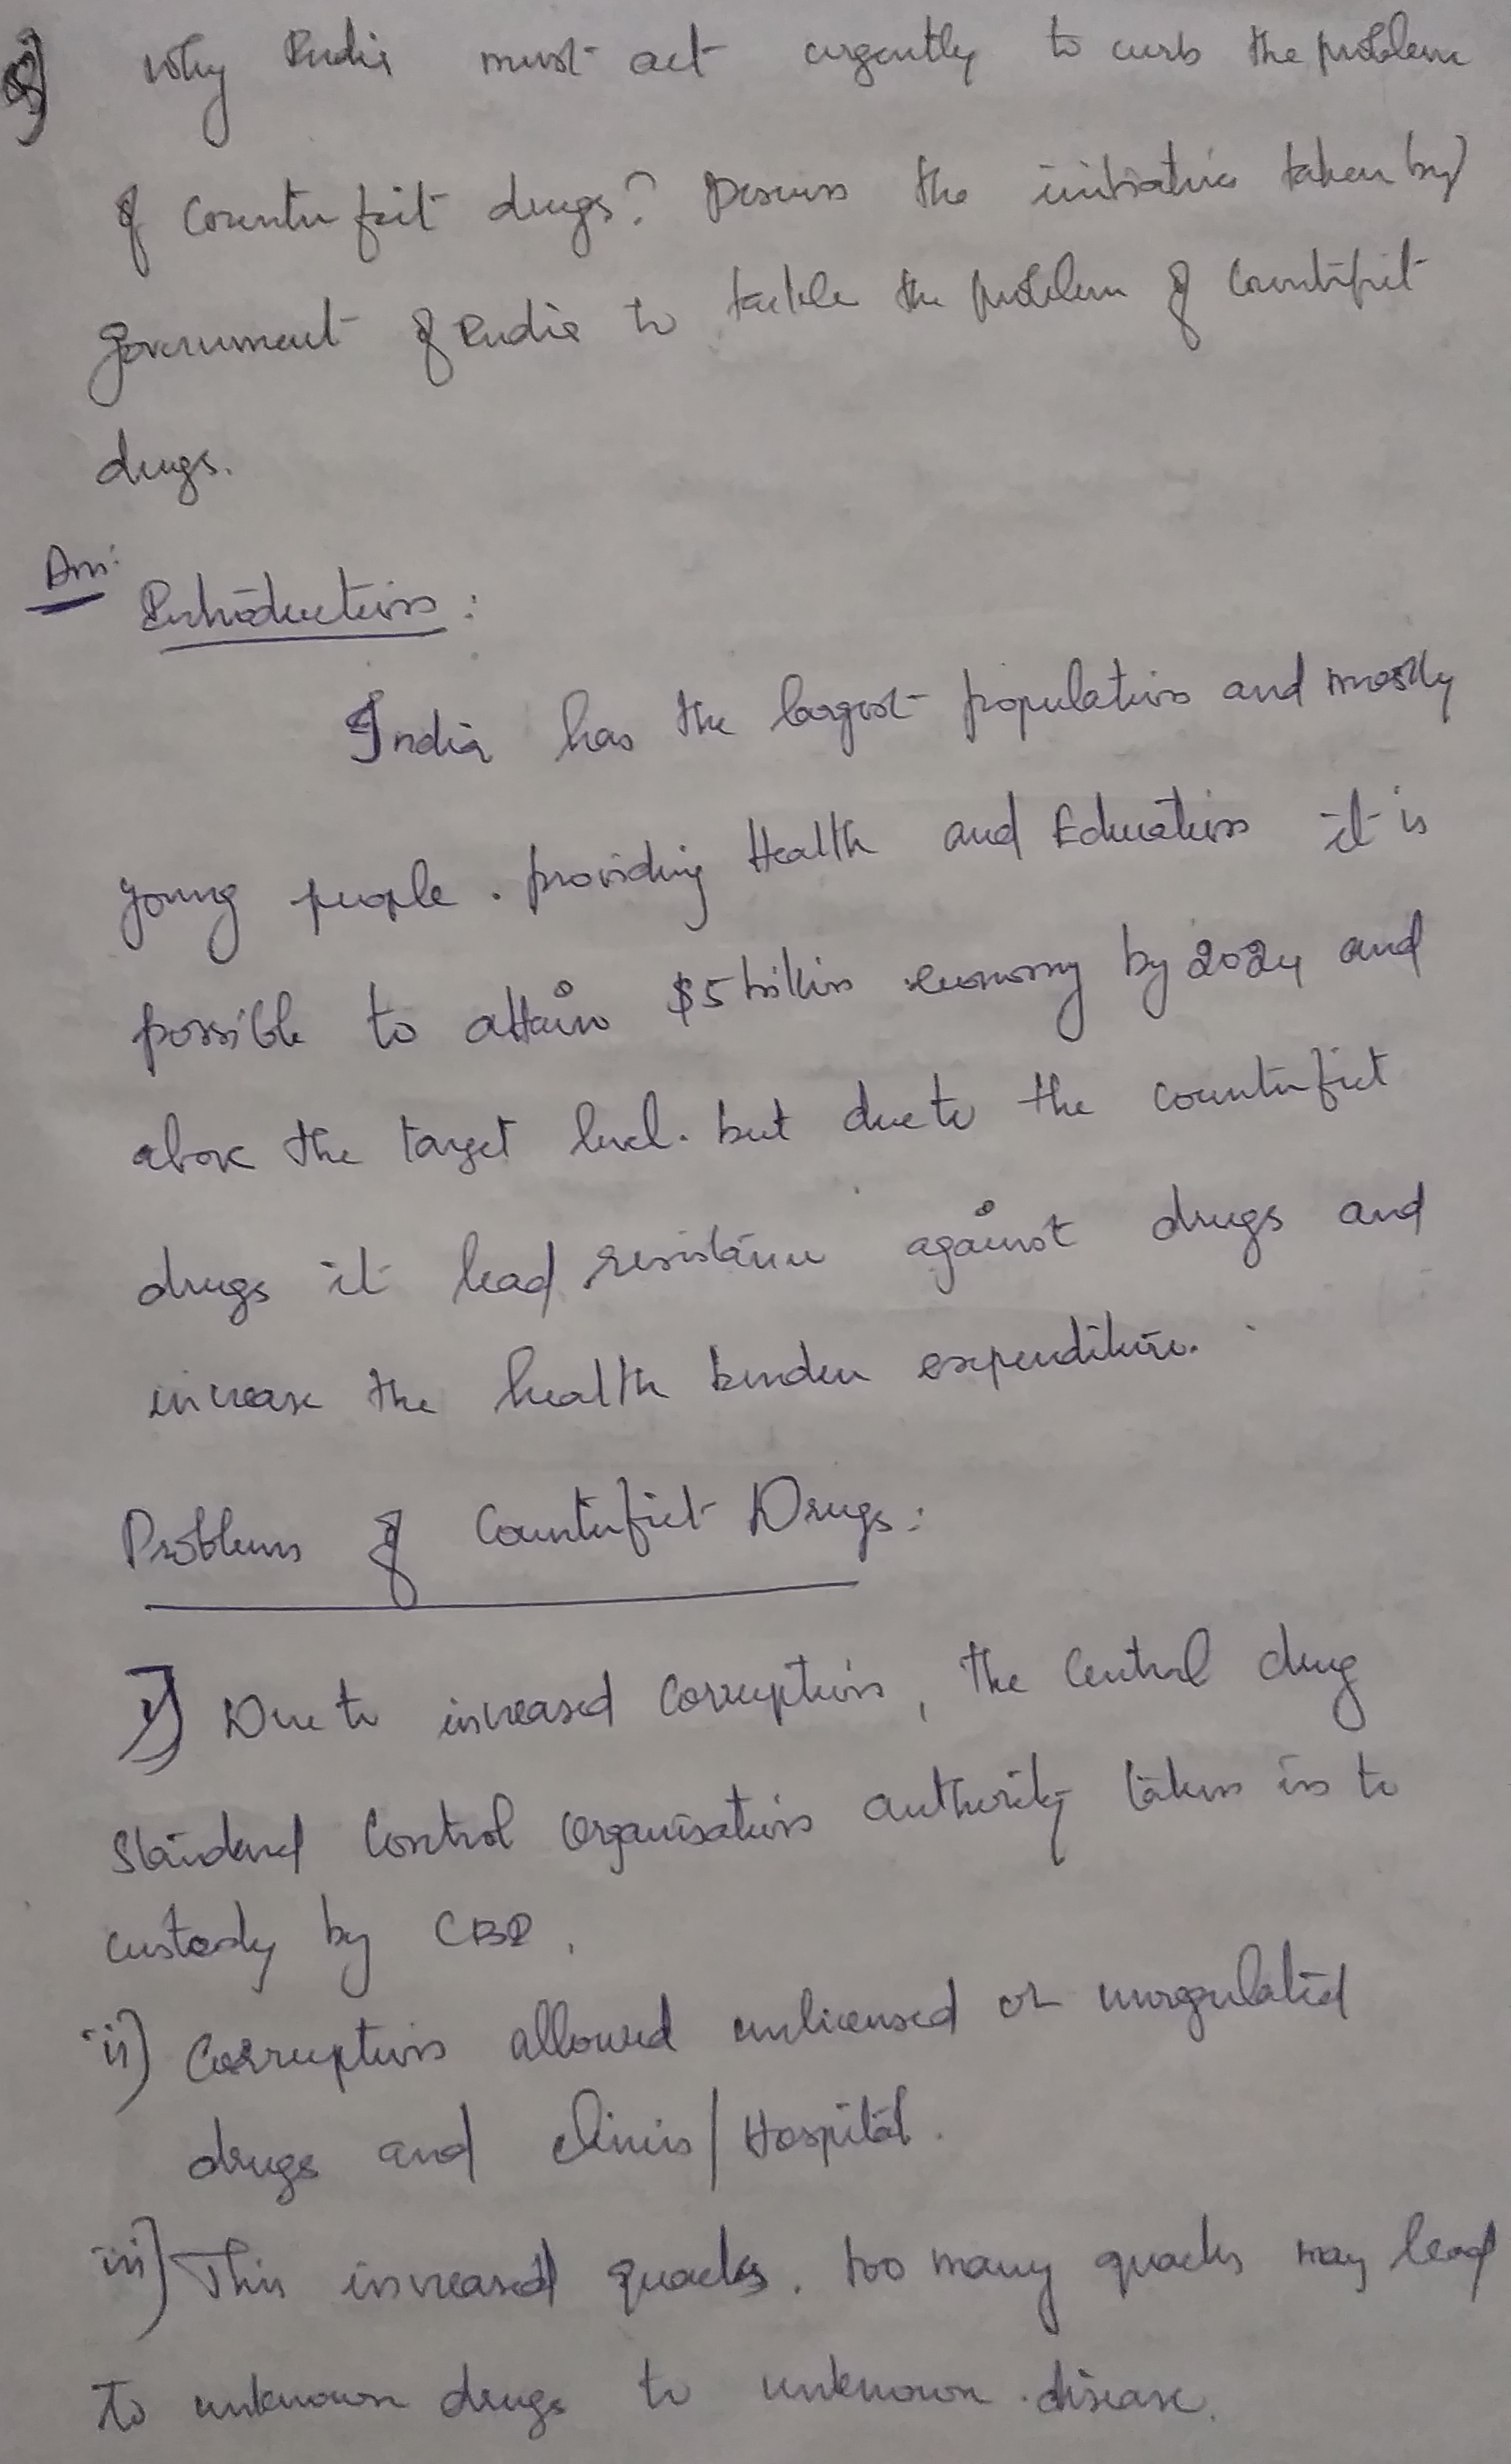 Q) Why India must act urgently to curb the problem
of Counterfeit drugs? Discuss the initiative taken by
Government of India to tackle the problem of Counterfeit
drugs.
Ans:
Introduction:
India has the largest population and mostly
young people. providing Health and Education it is
possible to attain $5 trillion economy by 2024 and
above the target level. but due to the counterfiet
drugs it lead resistance against drugs and
increase the health burden expenditure.
Problems of Counterfiet Drugs:
i) Due to increased corruption, the Central drug
Standard Control Organisation authority taken in to
custody by CBI.
ii) Corruption allowed unlicensed or unregulated
drugs and clinics/Hospital.
iii) This increased quacks. too many quacks may lead
to unknown drugs to unknown disease.